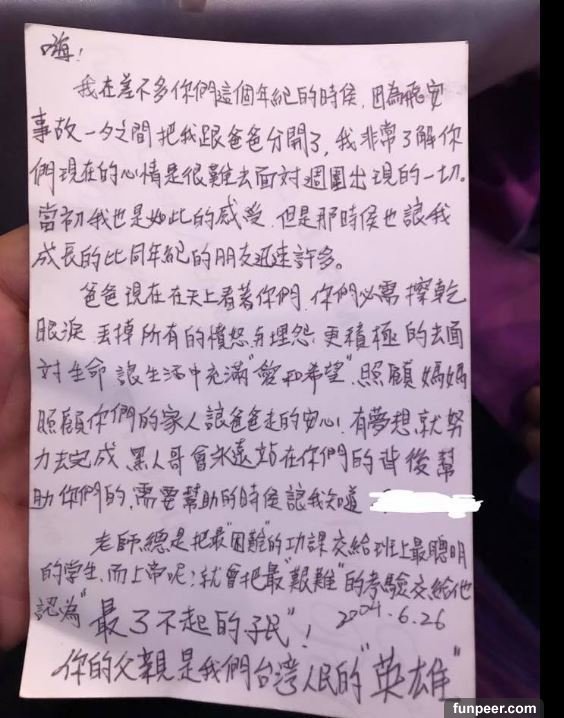 嗨!
我在差不多你們這個年紀的時候,因為飛安
事故一夕之間把我跟爸爸分開了,我非常了解你
們現在的心情是很難去面對週圍出現的一切。
當初我也是如此的感受,但是那時候也讓我
成長的比同年紀的朋友迅速許多。
爸爸現在在天上看著你們,你們必需擦乾
眼淚,丟掉所有的憤怒与埋怨,更積極的去面
對生命,讓生活中充滿"愛和希望",照顧媽媽
照顧你們的家人讓爸爸走的安心!有夢想,就努
力去完成,黑人哥會永遠站在你們的背後幫
助你們的,需要幫助的時候讓我知道
老師,總是把最"困難"的功課交給班上最聰明
的學生,而上帝呢?就會把最"艱難"的考驗交給他
認為"最了不起的子民"! 2004.6.26
你的父親是我們台灣人民的"英雄"
funpeer.com